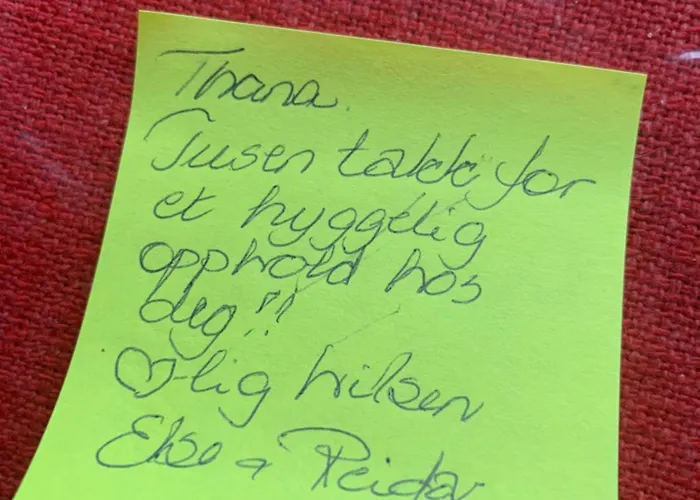 Thana.
Tusen takk for
et hyggelig
opphold hos
deg!!
♡lig hilsen
Else & Reidar